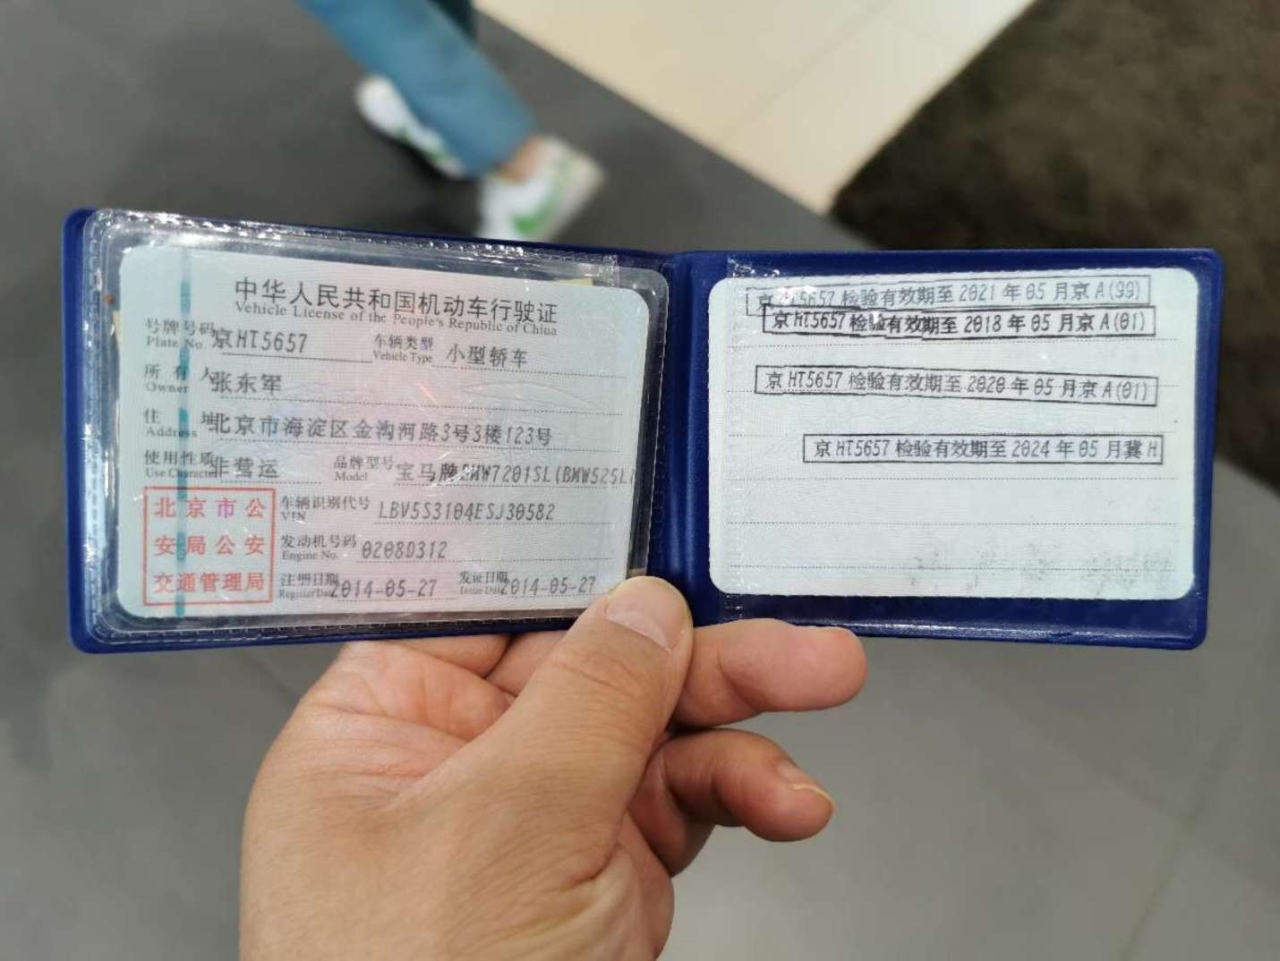 中华人民共和国机动车行驶证
Vehicle License of the People's Republic of China
号牌号码 京HT5657 车辆类型 小型轿车
Plate No. Vehicle Type
所有人 张东军
Owner
住 地北京市海淀区金沟河路3号3楼123号
Address
使用性质 非营运 品牌型号 宝马牌BMW7201SL(BMW525L
Use Character Model
北京市公
安局公安
交通管理局
车辆识别代号 LBV5S3104ESJ30582
VIN
发动机号码 0208D312
Engine No.
注册日期 2014-05-27 发证日期 2014-05-27
Register Date Issue Date
京HT5657 检验有效期至 2021 年 05 月京 A(99)
京HT5657 检验有效期至 2018 年 05 月京 A(01)
京HT5657 检验有效期至 2020 年 05 月京 A(01)
京HT5657 检验有效期至 2024 年 05 月冀 H